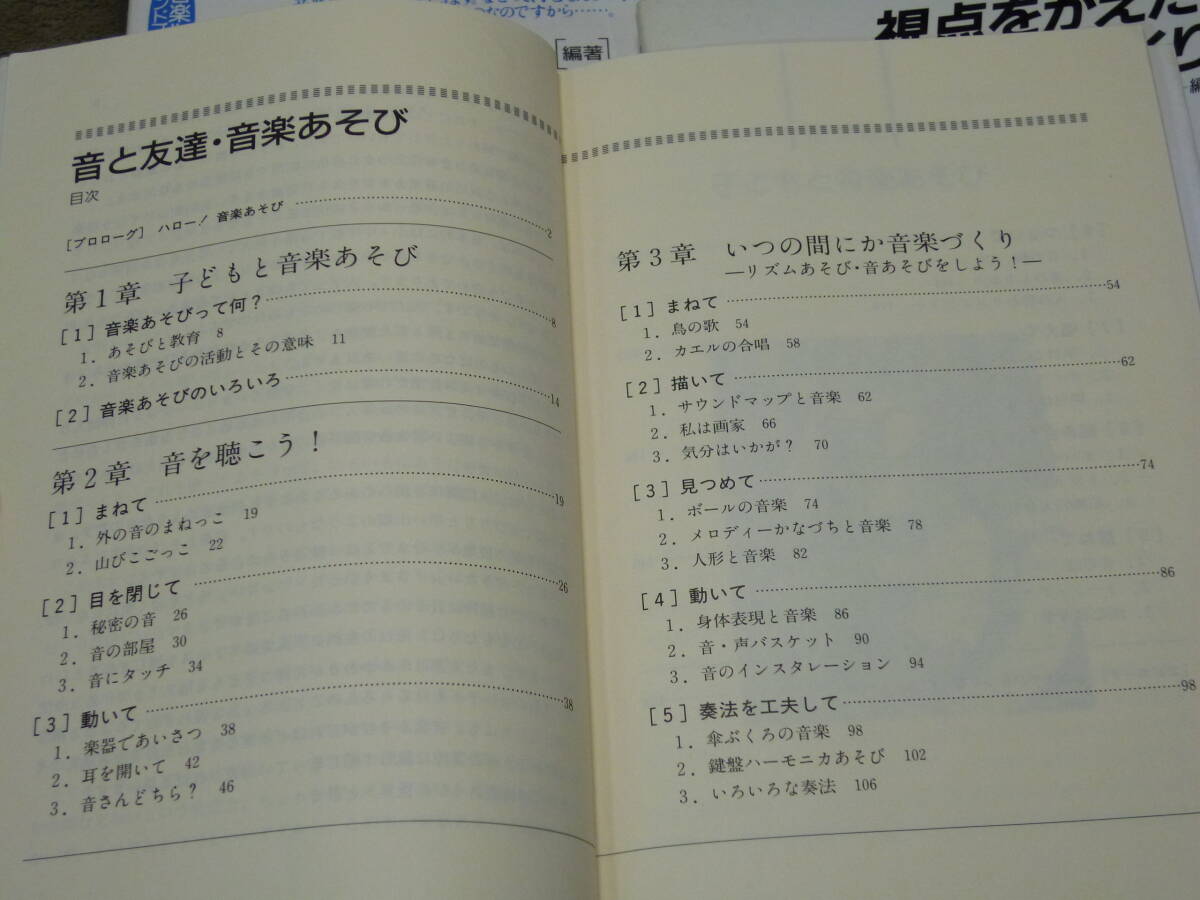 つなのですから……。
[編著]
視点をかえた
音と友達・音楽あそび
目次
[プロローグ] ハロー! 音楽あそび……2
第1章 子どもと音楽あそび
[1]音楽あそびって何?……8
1. あそびと教育 8
2. 音楽あそびの活動とその意味 11
[2]音楽あそびのいろいろ……14
第2章 音を聴こう!
[1]まねて……19
1. 外の音のまねっこ 19
2. 山びこごっこ 22
[2]目を閉じて……26
1. 秘密の音 26
2. 音の部屋 30
3. 音にタッチ 34
[3]動いて……38
1. 楽器であいさつ 38
2. 耳を開いて 42
3. 音さんどちら? 46
第3章 いつの間にか音楽づくり
―リズムあそび・音あそびをしよう!―
[1]まねて……54
1. 鳥の歌 54
2. カエルの合唱 58
[2]描いて……62
1. サウンドマップと音楽 62
2. 私は画家 66
3. 気分はいかが? 70
[3]見つめて……74
1. ボールの音楽 74
2. メロディーかなづちと音楽 78
3. 人形と音楽 82
[4]動いて……86
1. 身体表現と音楽 86
2. 音・声バスケット 90
3. 音のインスタレーション 94
[5]奏法を工夫して……98
1. 傘ぶくろの音楽 98
2. 鍵盤ハーモニカあそび 102
3. いろいろな奏法 106